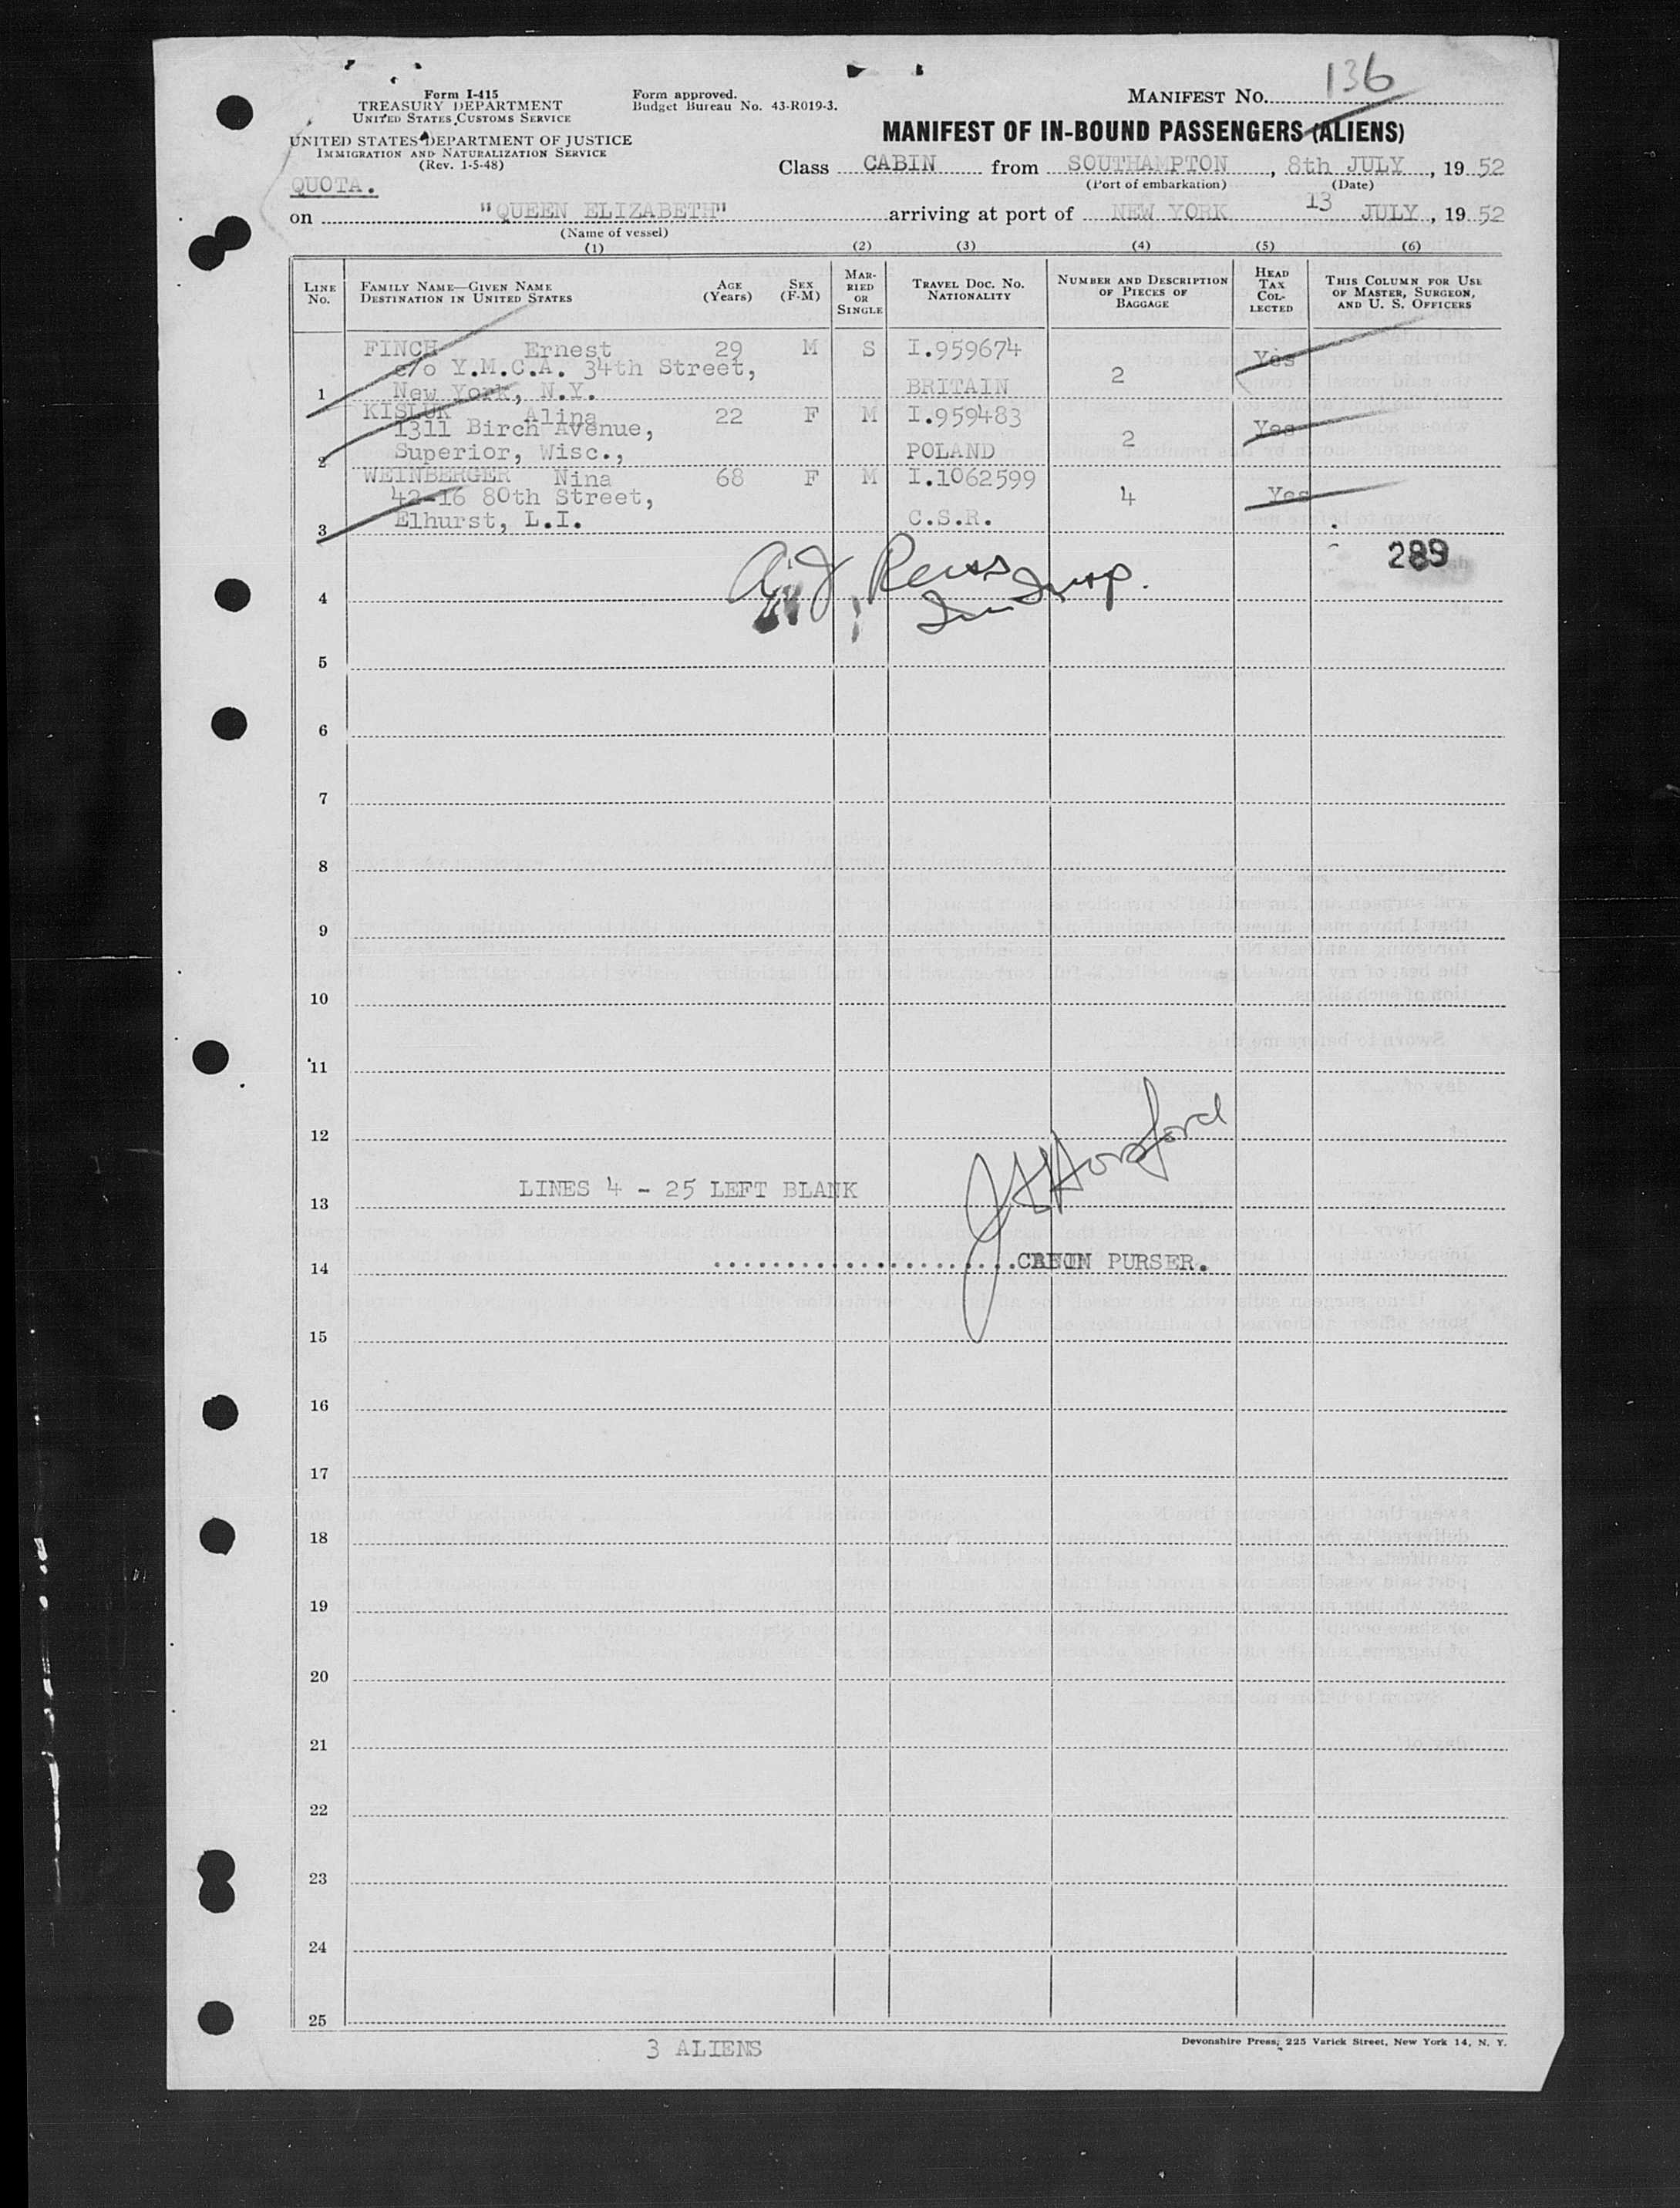 136
Form I-415
TREASURY DEPARTMENT
UNITED STATES CUSTOMS SERVICE
UNITED STATES DEPARTMENT OF JUSTICE
IMMIGRATION AND NATURALIZATION SERVICE
(Rev. 1-5-48)
Form approved.
Budget Bureau No. 43-R019-3.
MANIFEST NO.
MANIFEST OF IN-BOUND PASSENGERS (ALIENS)
Class CABIN from SOUTHAMPTON, 8th JULY, 1952
(Port of embarkation) (Date)
QUOTA.
on "QUEEN ELIZABETH" arriving at port of NEW YORK 13 JULY, 1952
(Name of vessel)
(1) (2) (3) (4) (5) (6)
LINE NO. FAMILY NAME—GIVEN NAME DESTINATION IN UNITED STATES AGE (Years) SEX (F-M) MARRIED OR SINGLE TRAVEL DOC. NO. NATIONALITY NUMBER AND DESCRIPTION OF PIECES OF BAGGAGE HEAD TAX COLLECTED THIS COLUMN FOR USE OF MASTER, SURGEON, AND U. S. OFFICERS
FINCH Ernest 29 M S I.959674 Yes
c/o Y.M.C.A. 34th Street, 2
1 New York, N.Y. BRITAIN
KISLUK Alina 22 F M I.959483 Yes
1311 Birch Avenue, 2
2 Superior, Wisc., POLAND
WEINBERGER Nina 68 F M I.1062599
42-16 80th Street, 4 Yes
3 Elhurst, L.I. C.S.R.
289
A. J. Reiss
Im Insp.
4
5
6
7
8
9
10
11
12
LINES 4 - 25 LEFT BLANK
13
14 CABIN PURSER.
15
16
17
18
19
20
21
22
23
24
25
3 ALIENS
Devonshire Press, 225 Varick Street, New York 14, N. Y.